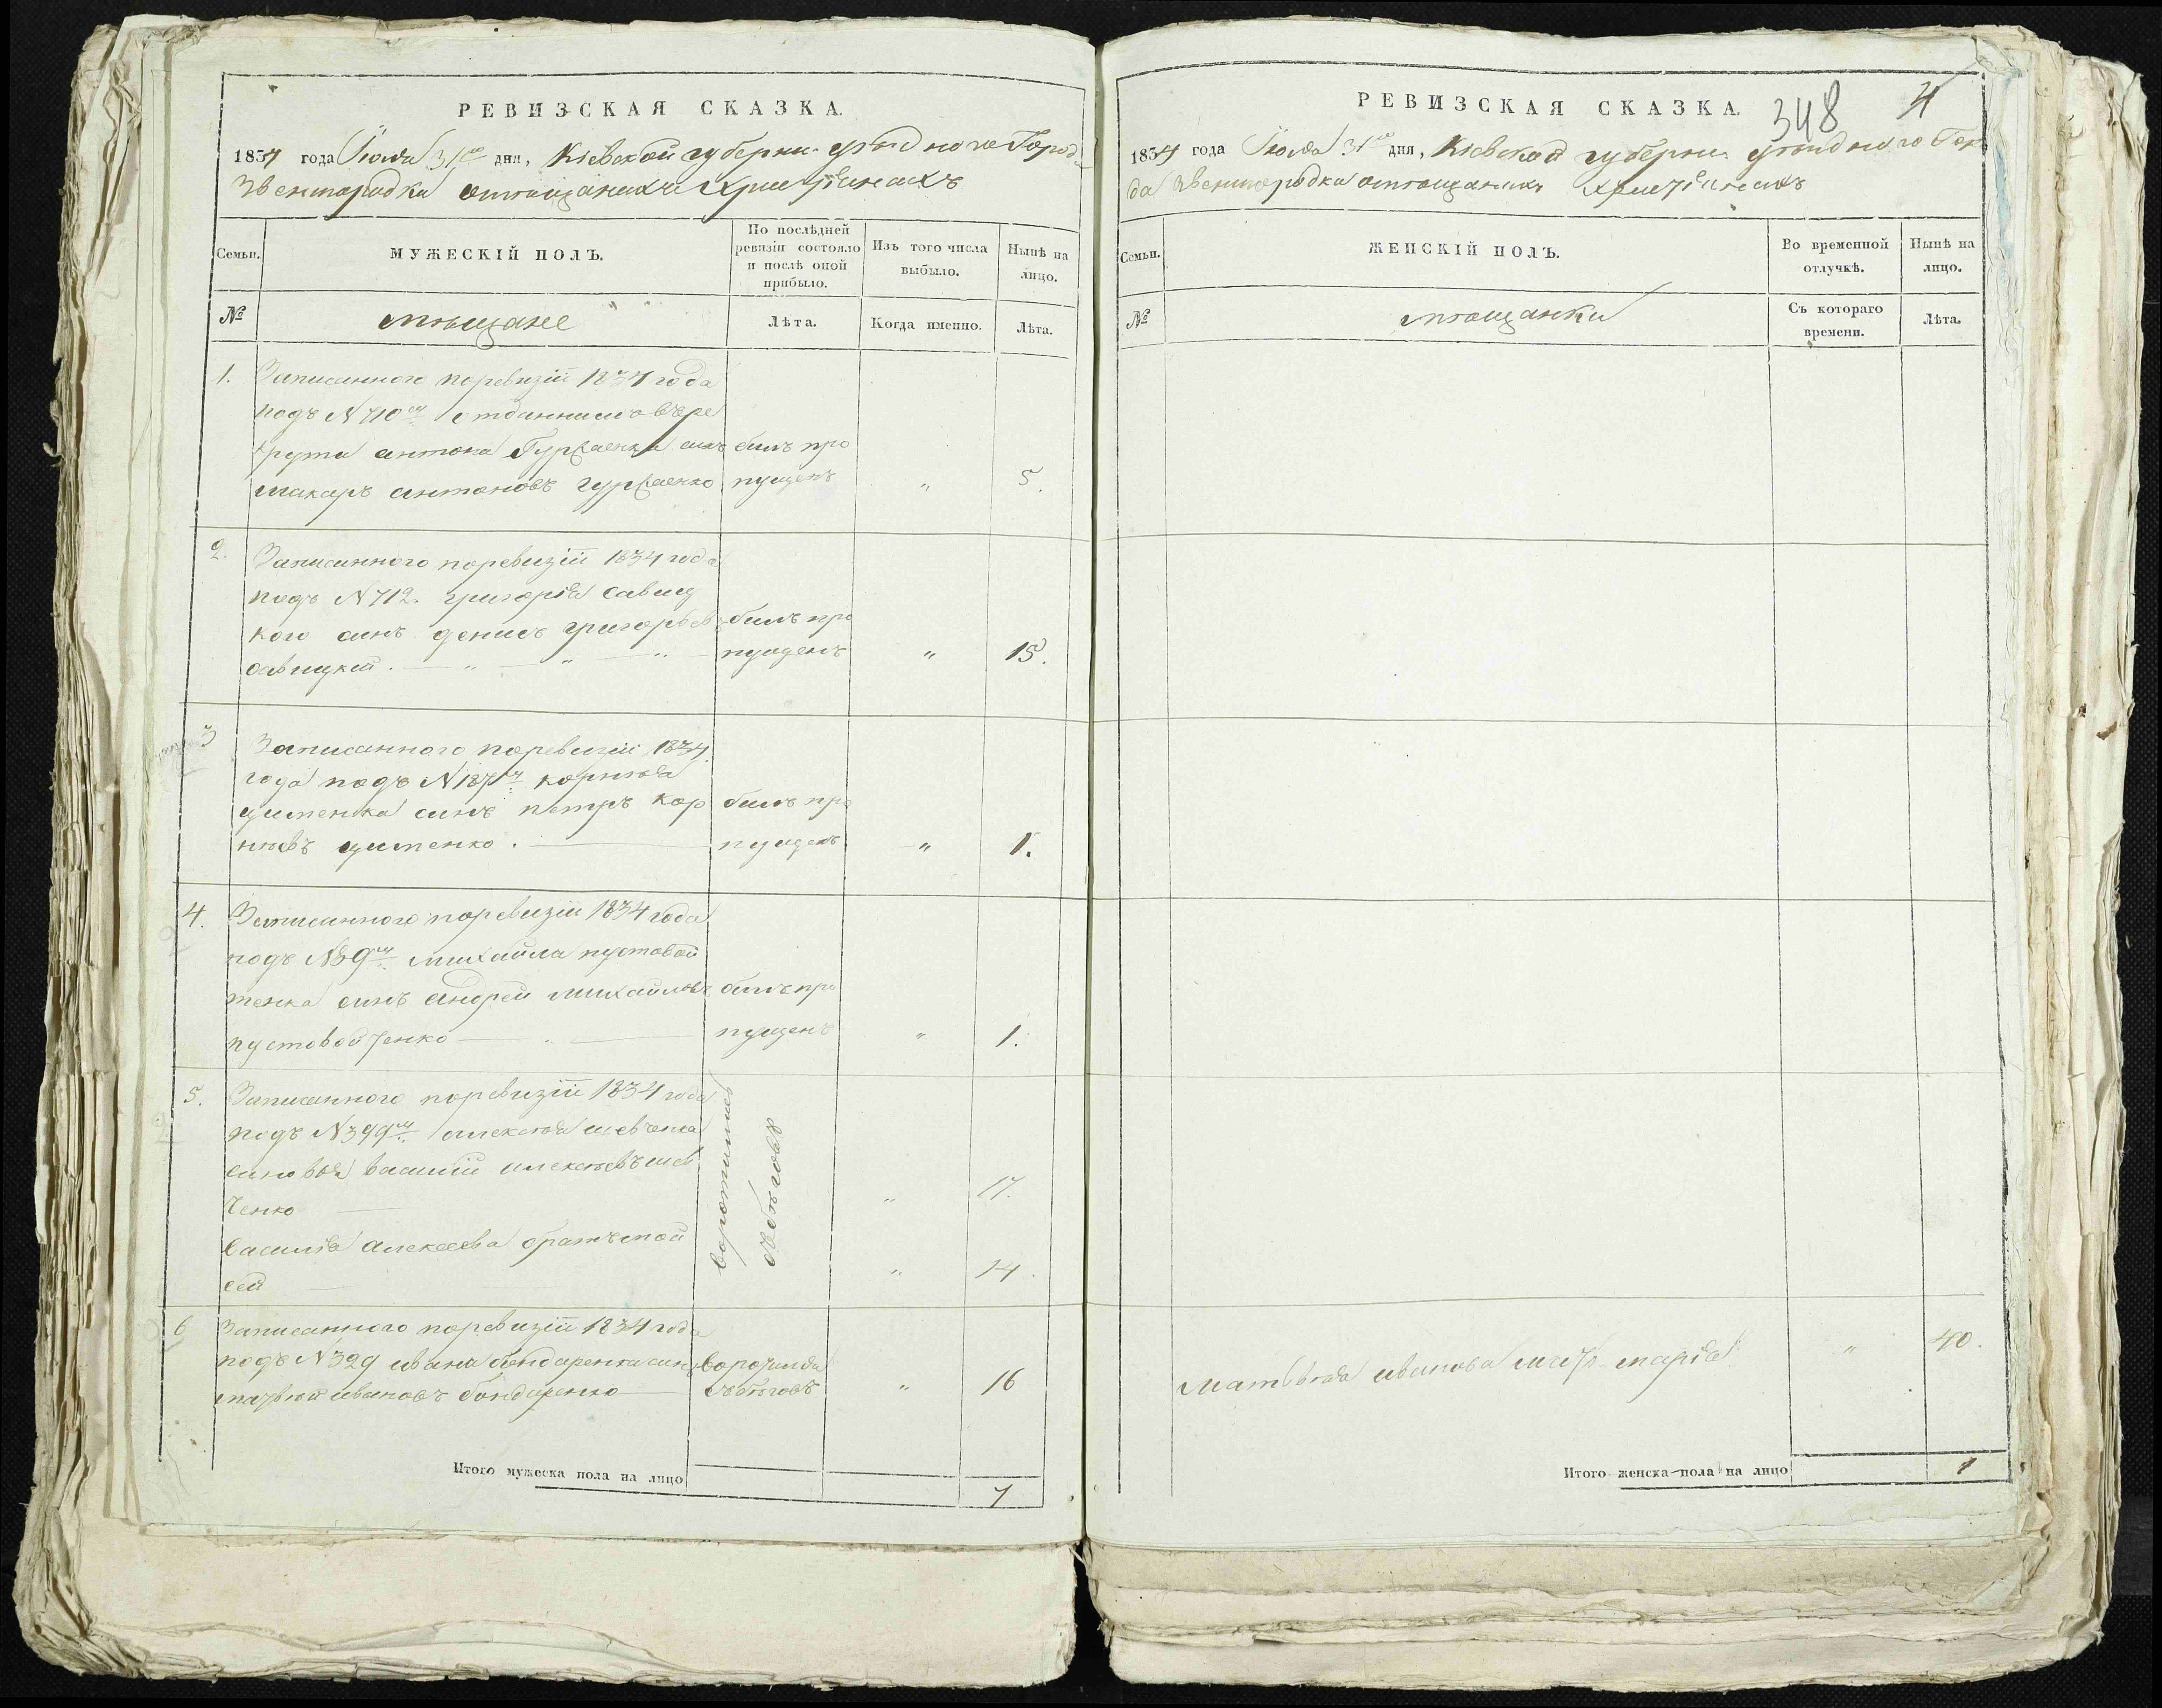 РЕВИЗСКАЯ СКАЗКА.
1834 года Июля 31го дня, Кіевской губерни уѣздного Города
Звенигородки омѣщанахъ Христіянахъ
Семьи.
МУЖЕСКІЙ ПОЛЪ.
По послѣдней ревизіи состояло и послѣ оной прибыло.
Изъ того числа выбыло.
Нынѣ на лицо.
№
мѣщане
Лѣта.
Когда именно.
Лѣта.
1. Записанного поревизіи 1834 года
подъ N 710мъ отданнимъ въ ре
крути антона синъ билъ про
макаръ антоновъ пущенъ " 5.
2. Записанного поревизіи 1834 года
подъ N 712. григорія савиц
кого синъ денисъ григорьевъ билъ про
савицкій. пущенъ " 15.
3 Записанного поревизіи 1834
года подъ N 187мъ корнѣя
синъ петръ кор билъ про
нѣевъ пущенъ " 1.
4. Записанного поревизіи 1834 года
подъ N 39мъ михайла пустовой
тенка синъ андрей михайловъ билъ про
пустовойтенко пущенъ " 1.
5. Записанного поревизіи 1834 года
подъ N 399мъ алексѣя шевченка
синовья василій алексѣевъ шев
ченко " 17.
василія алексеева братъ мой
сей " 14.
воротились
збѣговъ
6 Записанного поревизіи 1834 года
подъ N 329 ивана бондаренка синъ воротился
матвѣй ивановъ бондаренко збѣговъ " 16
Итого мужеска пола на лицо 7
РЕВИЗСКАЯ СКАЗКА.
348 4
1834 года Июля 31го дня, Кіевской губерни уѣздного Горо
да Звенигородки омѣщанахъ Христіянахъ
Семьи.
ЖЕНСКІЙ ПОЛЪ.
Во временной отлучкѣ.
Нынѣ на лицо.
№
мѣщанки
Съ котораго времени.
Лѣта.
Матвѣя иванова мать марія " 40.
Итого женска пола на лицо 1